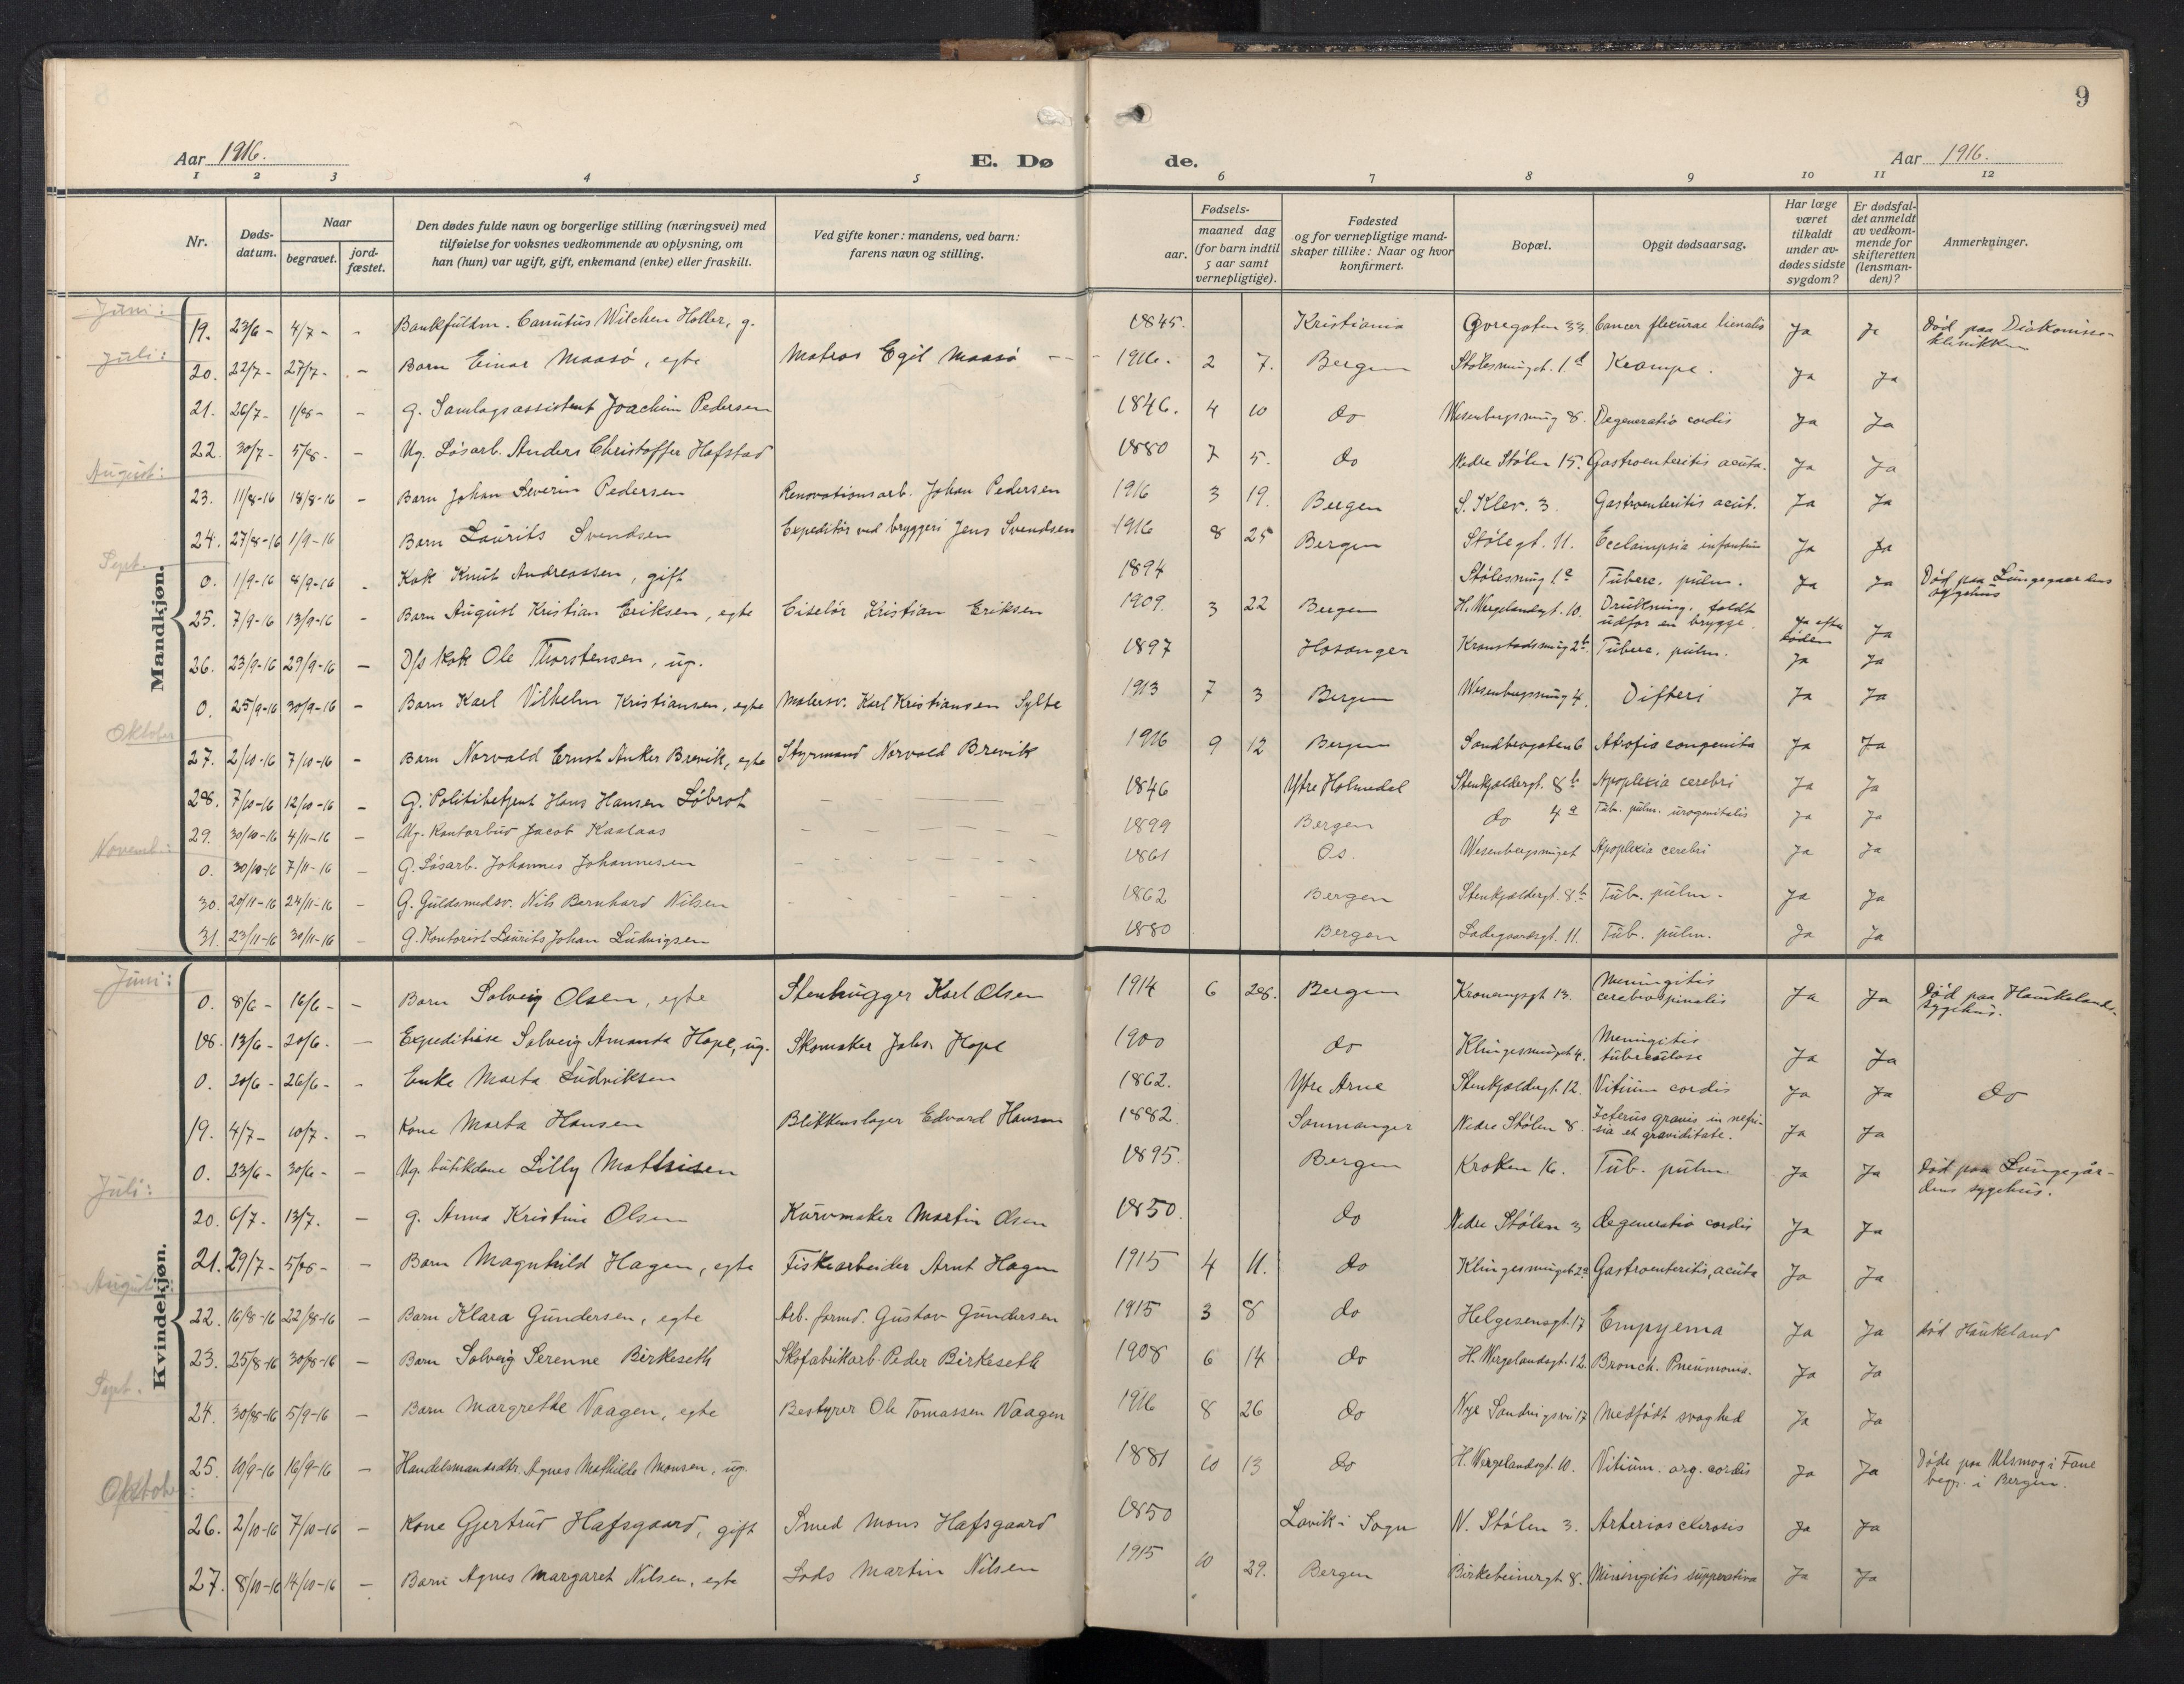 9
Aar 1916.
E. Dø
de.
Aar 1916.
1 2 3 4 5 6 7 8 9 10 11 12
Nr.
Døds-
datum.
Naar
begravet.
jord-
fæstet.
Den dødes fulde navn og borgerlige stilling (næringsvei) med
tilføielse for voksnes vedkommende av oplysning, om
han (hun) var ugift, gift, enkemand (enke) eller fraskilt.
Ved gifte koner: mandens, ved barn:
farens navn og stilling.
Fødsels-
aar.
maaned dag
(for barn indtil
5 aar samt
vernepligtige).
Fødested
og for vernepligtige mand-
skaper tillike: Naar og hvor
konfirmert.
Bopæl.
Opgit dødsaarsag.
Har læge
været
tilkaldt
under av-
dødes sidste
sygdom?
Er dødsfal-
det anmeldt
av vedkom-
mende for
skifteretten
(lensman-
den)?
Anmerkninger.
Mandkjøn.
Juni:
19. 23/6 - 4/7 - - Bankfuldm. Canutus Wilchen Holler, g. 1845. Kristiania Øvregaten 33. Cancer flexurae lienalis Ja Ja Død paa Diakonisse-
klinikken
Juli:
20. 22/7 - 27/7 - - Barn Einar Maasø, egte Matros Egil Maasø - - 1916. 2 7. Bergen Stølesmuget. 1 d Krampe. Ja Ja
21. 26/7 - 1/8 - - G. Samlagsassistent Joachim Pedersen 1846. 4 10 do Wesenbergsmug 8. Degeneratio cordis Ja Ja
22. 30/7 - 5/8 - - Ug. Løsarb. Anders Christoffer Hafstad 1880 7 5. do Nedre Stølen 15. Gastroenteritis acuta. Ja Ja
August:
23. 11/8-16 18/8-16 - Barn Johan Severin Pedersen Renovationsarb. Johan Pedersen 1916 3 19. Bergen S. Klev. 3. Gastroenteritis acut. Ja Ja
24. 27/8-16 1/9-16 Barn Laurits Svendsen Expeditør ved bryggeri Jens Svendsen 1916 8 25 Bergen Stølegt. 11. Ecclampsia infantum Ja Ja
Sept.
0. 1/9-16 8/9-16 - Kok Knut Andreassen, gift 1894 Stølesmug 1 e Tuberc. pulm. Ja Ja Død paa Lungegaardens
sygehus
25. 7/9-16 13/9-16 - Barn August Kristian Eriksen, egte Ciselør Kristian Eriksen 1909. 3 22 Bergen H. Wergelandsgt. 10. Drukning. faldt
udfor en brygge. Ja efter
døden Ja
26. 23/9-16 29/9-16 - D/s kok Ole Thorstensen, ug. 1897 Hosanger Kronstadsmug 2 b. Tuberc. pulm. Ja Ja
0. 25/9-16 30/9-16 - Barn Karl Vilhelm Kristiansen, egte Malersv. Karl Kristiansen Sylte 1913 7 3 Bergen Wesenbergsmug 4. Difteri Ja Ja
Oktober
27. 2/10-16 7/10-16 - Barn Norvald Ernst Anker Brevik, egte Styrmand Norvald Brevik 1916 9 12 Bergen Sandbrogaten 6 Atrofia congenita Ja Ja
28. 7/10-16 12/10-16 - G. Politibetjent Hans Hansen Løbrot 1846 Ytre Holmedal Stenkjeldergt. 8 b Apoplexia cerebri Ja Ja
29. 30/10-16 4/11-16 - Ug. Kontorbud Jacob Kaalaas 1899 Bergen do 4 a Tub. pulm. urogenitalis Ja Ja
Novemb.:
0. 30/10-16 7/11-16 - G. Løsarb. Johannes Johannesen 1861 Os. Wesenbergsmuget Apoplexia cerebri Ja Ja
30. 20/11-16 24/11-16 - G. Guldsmedsv. Nils Bernhard Nilsen 1862 Bergen Stenkjeldergt. 8 b Tub. pulm. Ja Ja
31. 23/11-16 30/11-16 - G. Kontorist Laurits Johan Ludvigsen 1880 Bergen Ladegaardsgt. 11. Tub. pulm. Ja Ja
Kvindekjøn.
Juni:
0. 8/6 - 16/6 - - Barn Solveig Olsen, egte Stenhugger Karl Olsen 1914 6 28. Bergen Kroneng­gt 13. Meningitis
cerebrospinalis Ja Ja Død paa Haukelands-
sygehus.
18. 13/6 - 20/6. - Expeditrise Solveig Amanda Hope, ug. Skomaker Johs. Hope 1900 do Klingesmuget 4. Meningitis
tuberculose Ja Ja
0. 20/6 - 26/6 - - Enke Marta Ludviksen 1862. Ytre Arne Stenkjeldergt. 12. Vitium cordis Ja Ja do
19. 4/7 - 10/7. - Kone Marta Hansen Blikkenslager Edvard Hansen 1882. Samnanger Nedre Stølen 8. Icterus gravis in
et graviditate. Ja Ja
0. 23/6 - 30/6 - - Ug. butikdame Lilly Mathisen 1895. Bergen Kroken 16. Tub. pulm. Ja Ja Død paa Lungegår-
dens sygehus.
Juli:
20. 6/7. 13/7. - g. Anna Kristine Olsen Kurvmaker Martin Olsen 1850. do Nedre Stølen 3 degeneratio cordis Ja Ja
21. 29/7 - 5/8 - - Barn Magnhild Hagen, egte Fiskearbeider Arnt Hagen 1915 4 11. do Klingesmuget 2 a Gastroenteritis, acuta Ja Ja
August:
22. 16/8-16 22/8-16 - Barn Klara Gundersen, egte Arb. formd. Gustav Gundersen 1915 3 8 do Helgesensgt. 17 Empyema Ja Ja død Haukeland
23. 25/8-16 30/8-16 - Barn Solveig Serenne Birkeseth Skofabrikarb. Peder Birkeseth 1908 6 14 do H. Wergelandsgt. 12. Bronch. Pneumonia. Ja Ja
Sept.
24. 30/8-16 5/9-16 - Barn Margrethe Vaagen, egte Bestyrer Ole Tomassen Vaagen 1916 8 26 do Nye Sandvigsvei 17 Medfødt svaghed Ja Ja
25. 10/9-16 16/9-16 - Handelsmandsdtr. Agnes Mathilde Monsen, ug. 1881 10 13 do H. Wergelandsgt. 10. Vitium. org. cordis Ja Ja Døde paa Ulsmog i Fane
begr. i Bergen.
Oktober:
26. 2/10-16 7/10-16 - Kone Gjertrud Hafsgaard, gift Smed Mons Hafsgaard 1850 Lavik i Sogn N. Stølen 3. Arteriosclerosis Ja Ja
27. 8/10-16 14/10-16 - Barn Agnes Margaret Nilsen, egte Lods Martin Nilsen 1915 10 29. Bergen Birkebeinergt 8. Miningitis supperativa Ja Ja